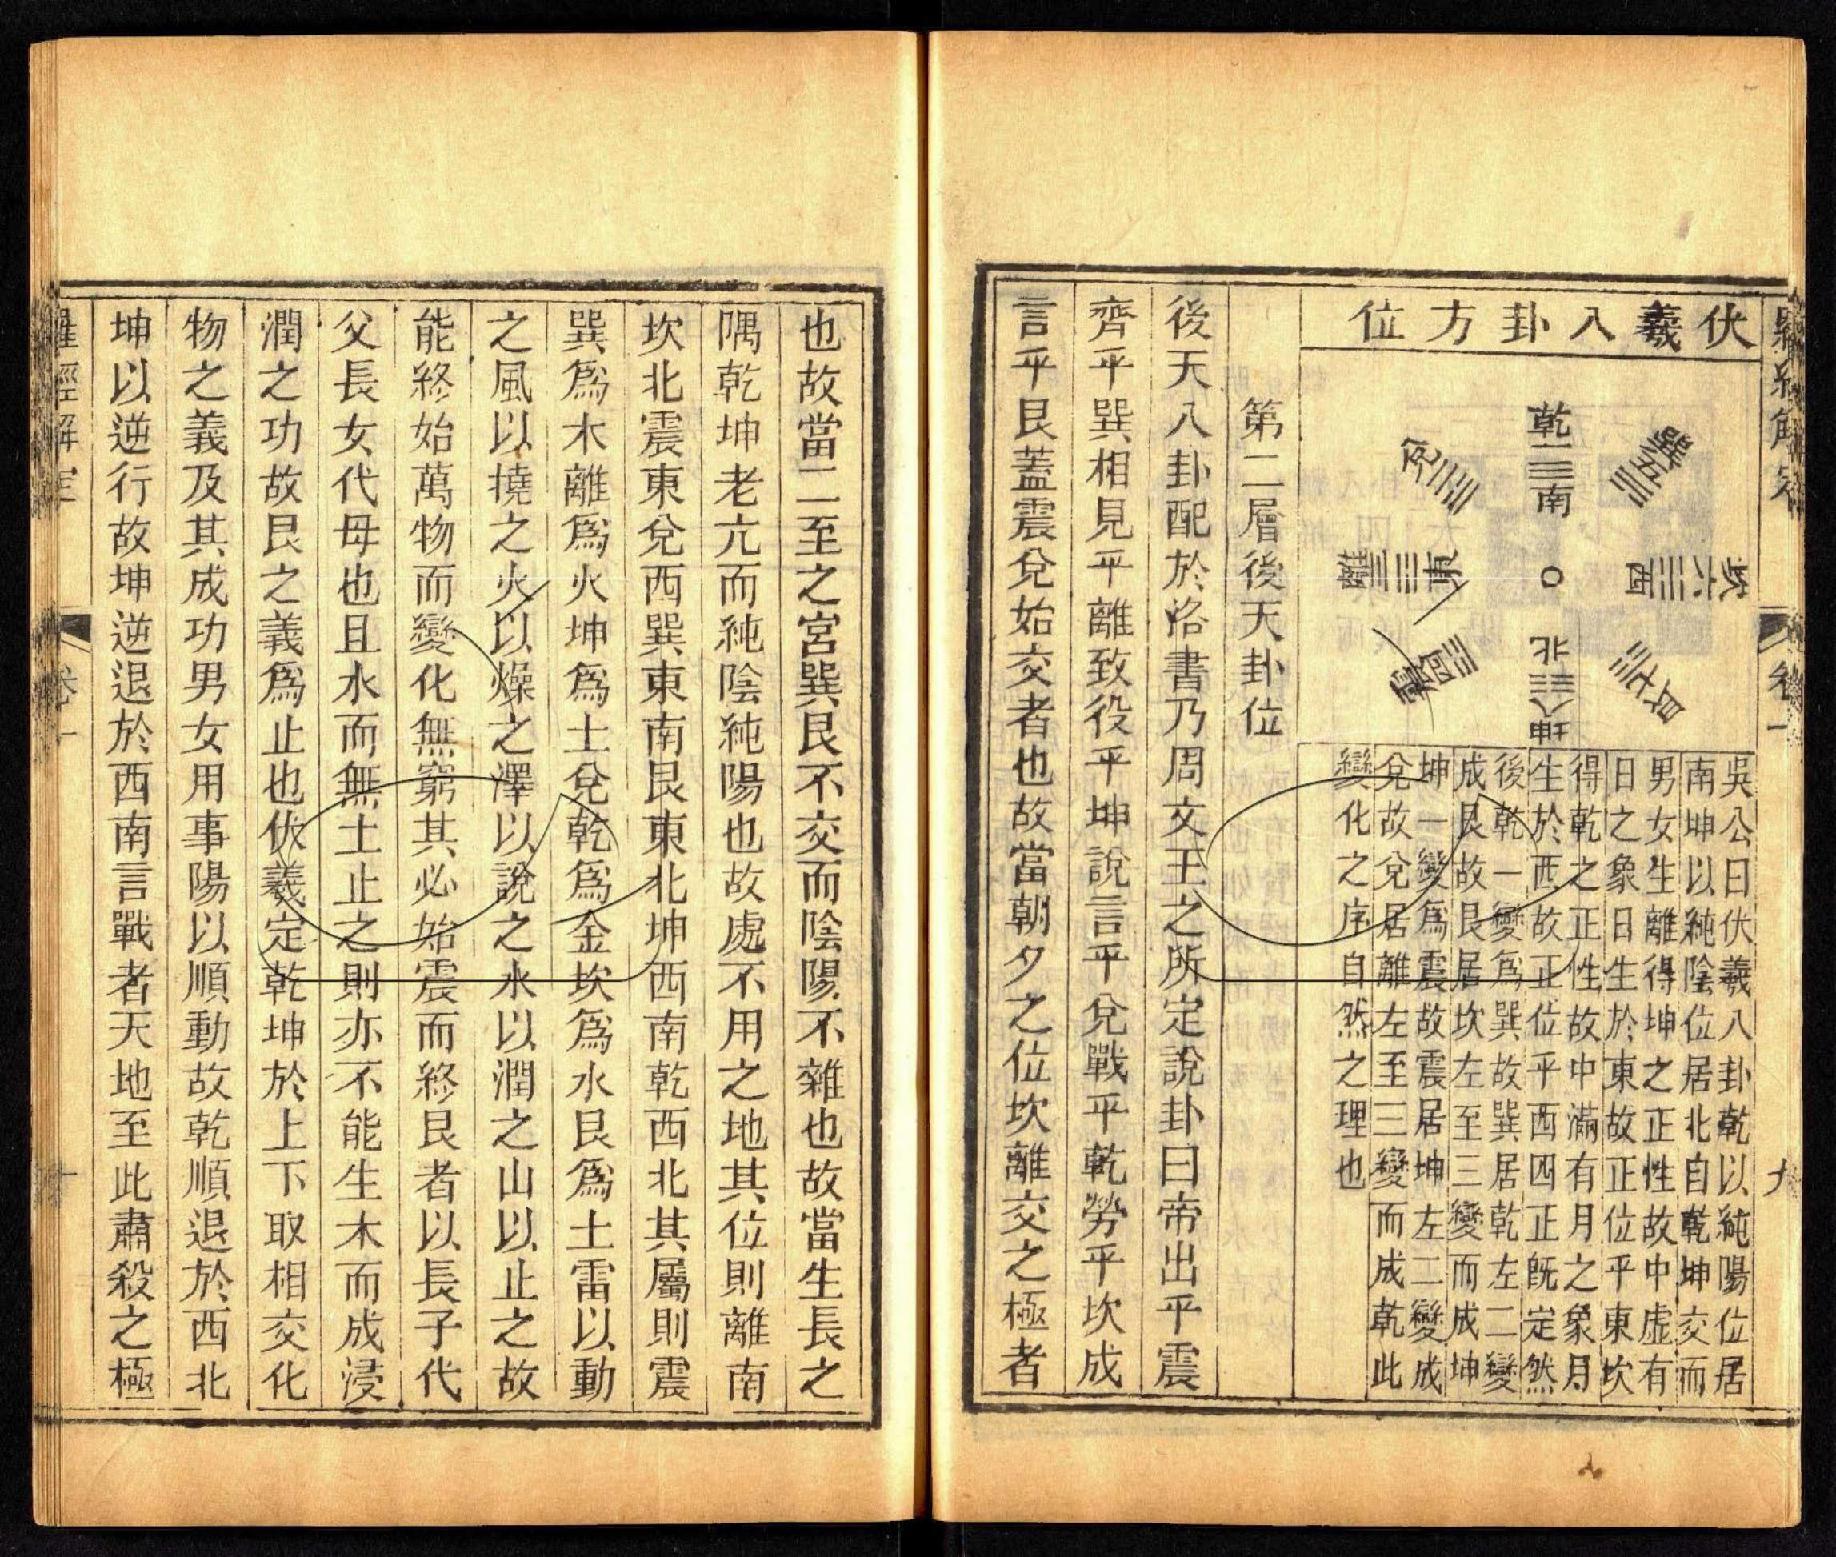 羅經解定
卷一
九
伏羲八卦方位
乾一
南
兌二
離三
東
震四
巽五
坎六
西
艮七
坤八
北
吳公曰伏羲八卦乾以純陽位居
南坤以純陰位居北自乾坤交而
男女生離得坤之正性故中虛有
日之象日生於東故正位乎東坎
得乾之正性故中滿有月之象月
生於西故正位乎西四正旣定然
後乾一變爲巽故巽居乾左二變
成艮故艮居坎左至三變而成坤
坤一變爲震故震居坤左二變成
兌故兌居離左至三變而成乾此
變化之序自然之理也
第二層後天卦位
後天八卦配於洛書乃周文王之所定說卦曰帝出乎震
齊乎巽相見乎離致役乎坤說言乎兌戰乎乾勞乎坎成
言乎艮蓋震兌始交者也故當朝夕之位坎離交之極者
也故當二至之宮巽艮不交而陰陽不雜也故當生長之
隅乾坤老亢而純陰純陽也故處不用之地其位則離南
坎北震東兌西巽東南艮東北坤西南乾西北其屬則震
巽爲木離爲火坤爲土兌乾爲金坎爲水艮爲土雷以動
之風以撓之火以燥之澤以說之水以潤之山以止之故
能終始萬物而變化無窮其必始震而終艮者以長子代
父長女代母也且水而無土止之則亦不能生木而成浸
潤之功故艮之義爲止也伏羲定乾坤於上下取相交化
物之義及其成功男女用事陽以順動故乾順退於西北
坤以逆行故坤逆退於西南言戰者天地至此肅殺之極
羅經解定
卷一
十